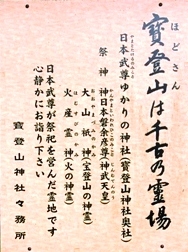 ほどさん
寳登山は千古の霊場
やまとたけるのみこと
日本武尊ゆかりの神社(寳登山神社奥社)
祭神 神日本磐余彦尊(神武天皇)
おおやまづみのかみ
大山祇神(宝登山の神霊)
ほむすびのかみ
火産霊神(火の神霊)
日本武尊が祭祀を営んだ霊地です
心静かにお詣り下さい
寳登山神社々務所